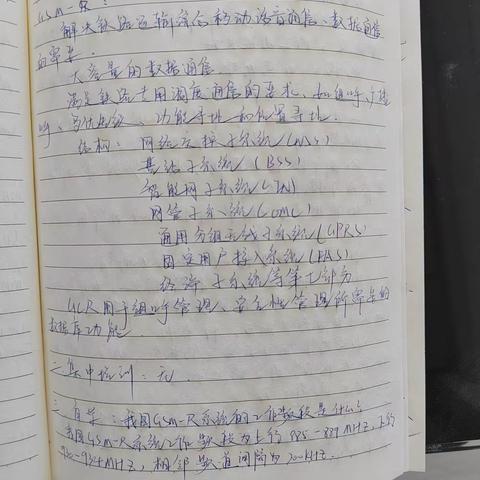 GSM-R:
解决铁路运输综合移动话音通信、数据通信
的需要.
大容量的数据通信.
满足铁路专用调度通信的要求、如组呼、广播
呼、多优先级、功能寻址和位置寻址.
结构: 网络交换子系统(NSS)
基站子系统 (BSS)
智能网子系统(IN)
网管子系统(OMC)
通用分组无线子系统(GPRS)
固定用户接入系统(FAS)
终端子系统等等七部分
GCR用于组呼管理、安全性管理所需要的
数据库功能
二集中培训: 无.
三自学: 我国GSM-R系统的工作频段是什么?
我国GSM-R系统工作频段为上行 885-889MHZ, 下行
930-934MHZ, 相邻频道间隔为200KHZ.